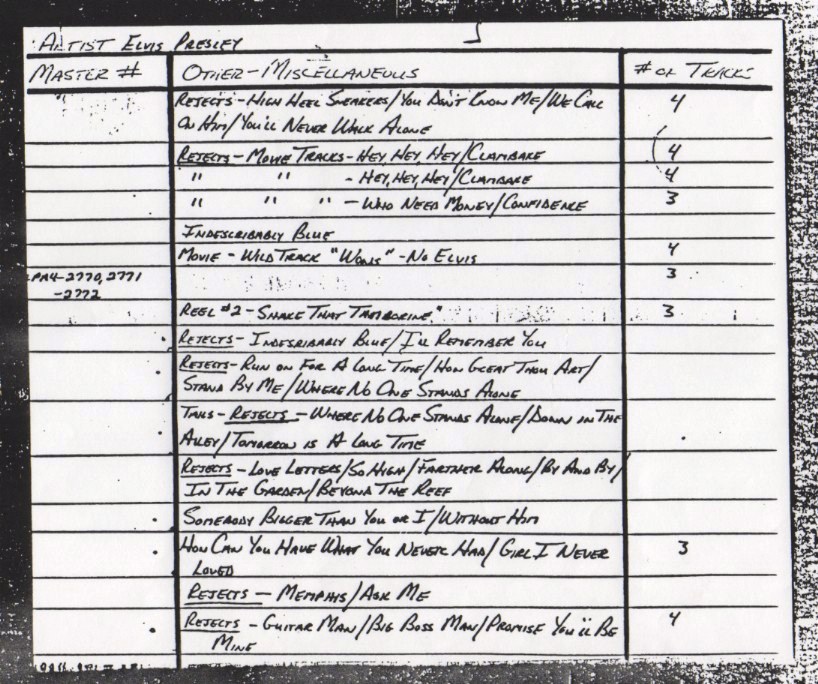 ARTIST ELVIS PRESLEY
MASTER # OTHER-MISCELLANEOUS # OF TRACKS
REJECTS-HIGH HEEL SNEAKERS/YOU DON'T KNOW ME/WE CALL 4
ON HIM/YOU'LL NEVER WALK ALONE
REJECTS-MOVIE TRACKS-HEY, HEY, HEY/CLAMBAKE 4
" " -HEY, HEY, HEY/CLAMBAKE 4
" " " -WHO NEED MONEY/CONFIDENCE 3
INDESCRIBABLY BLUE
MOVIE-WILD TRACK " " -NO ELVIS 4
PA4-2770, 2771 3
-2772
REEL #2-SHAKE THAT TAMBORINE" 3
REJECTS-INDESRIBABLY BLUE/I'LL REMEMBER YOU
REJECTS-RUN ON FOR A LONG TIME/HOW GREAT THOU ART/
STAND BY ME/WHERE NO ONE STANDS ALONE
TAILS-REJECTS-WHERE NO ONE STANDS ALONE/DOWN IN THE
ALLEY/TOMORROW IS A LONG TIME
REJECTS-LOVE LETTERS/SO HIGH/FARTHER ALONG/BY AND BY/
IN THE GARDEN/BEYOND THE REEF
SOMEBODY BIGGER THAN YOU OR I/WITHOUT HIM
HOW CAN YOU HAVE WHAT YOU NEVER HAD/GIRL I NEVER 3
LOVED
REJECTS-MEMPHIS/ASK ME
REJECTS-GUITAR MAN/BIG BOSS MAN/PROMISE YOU'LL BE 4
MINE